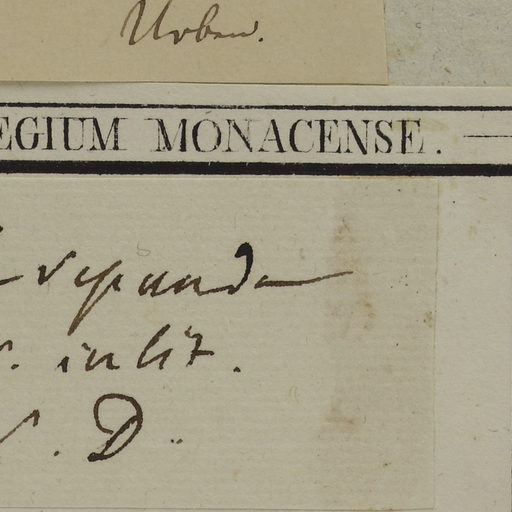 Urban.
EGIUM MONACENSE.
repanda
in lit.
D.